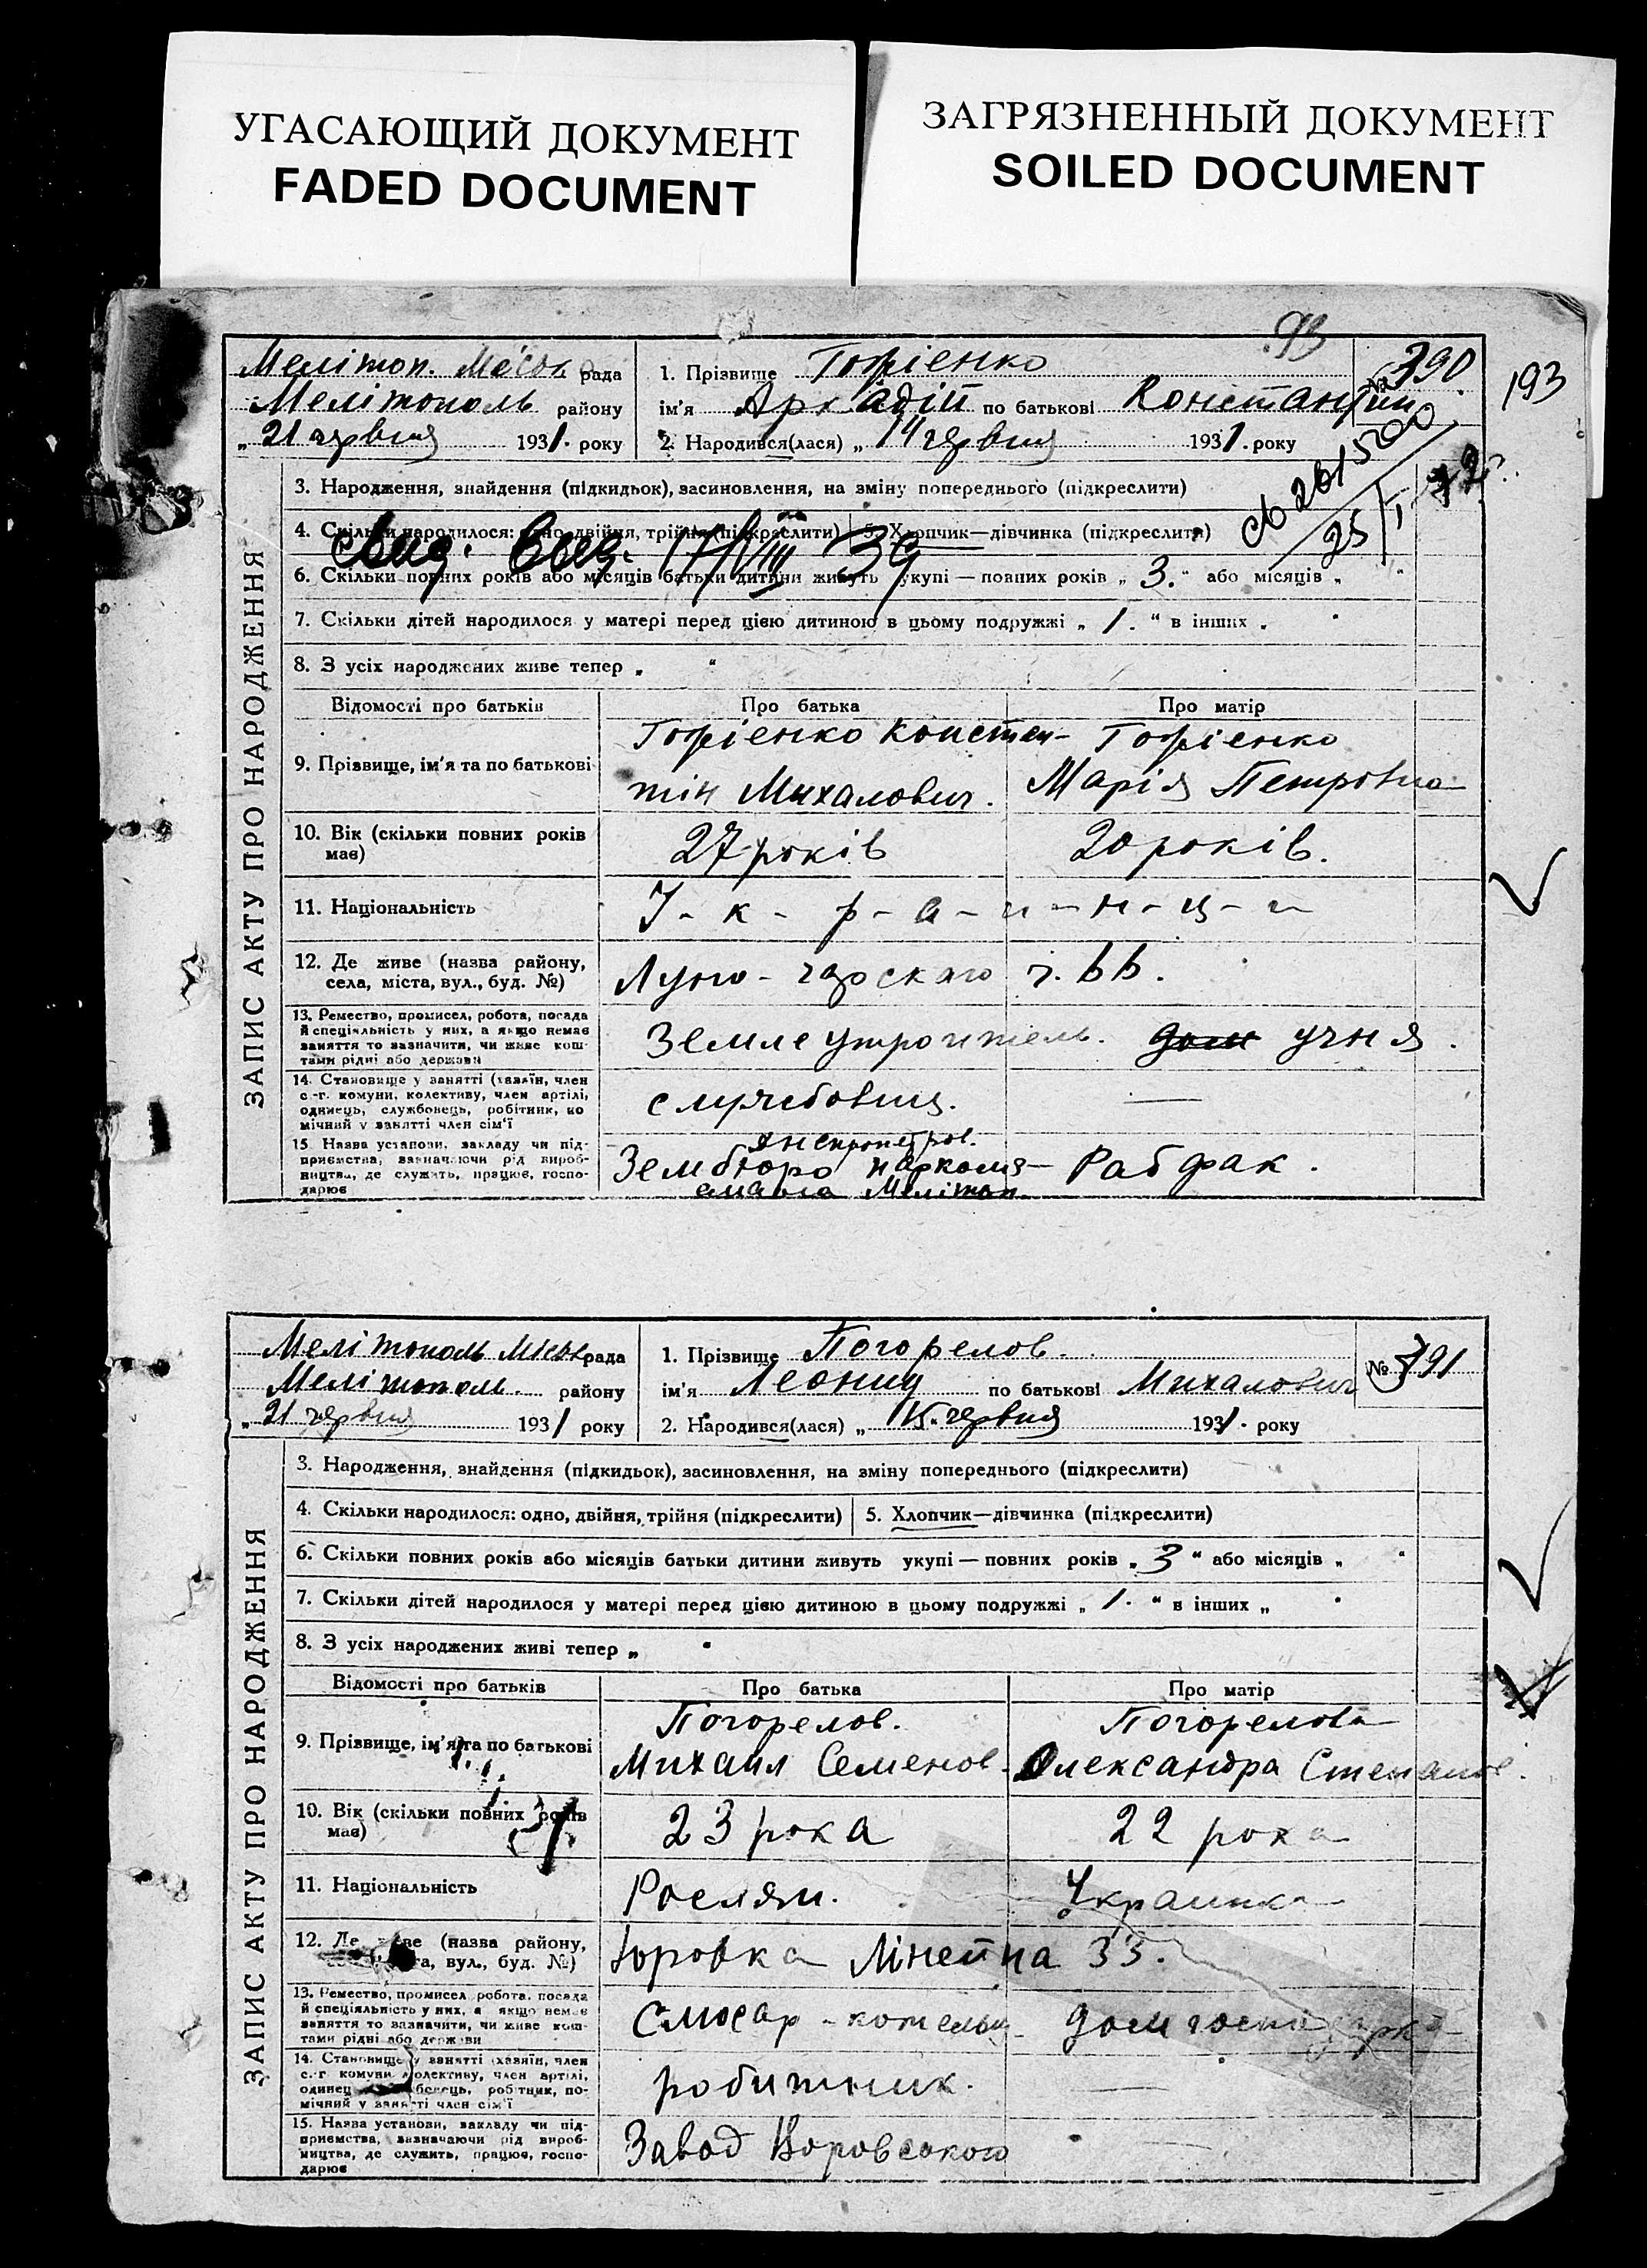 УГАСАЮЩИЙ ДОКУМЕНТ
FADED DOCUMENT
ЗАГРЯЗНЕННЫЙ ДОКУМЕНТ
SOILED DOCUMENT
93
193
ЗАПИС АКТУ ПРО НАРОДЖЕННЯ
Мелітоп. Міськ рада
Мелітополь району
„21 червня 1931. року
1. Прізвище Гордієнко
№ 390
ім'я Аркадій по батькові Константин
2. Народився(лася) „14 червня 1931. року
св 261500
25/I-72г.
3. Народження, знайдення (підкидьок), засиновлення, на зміну попереднього (підкреслити)
4. Скільки народилося: одно, двійня, трійня (підкреслити) 5. Хлопчик—дівчинка (підкреслити)
17/VIII 39
6. Скільки повних років або місяців батьки дитини живуть укупі — повних років „ 3. “ або місяців „ “
7. Скільки дітей народилося у матері перед цією дитиною в цьому подружжі „ 1. “ в інших „
8. З усіх народжених живе тепер „ “
Відомості про батьків Про батька Про матір
9. Прізвище, ім'я та по батькові
Констан-
тін Михалович.
Марія Петровна
10. Вік (скільки повних років має) 27 років 20 років.
11. Національність У-к-р-а-и-н-ц-и
12. Де живе (назва району, села, міста, вул., буд. №) Луно-чарскаго
13. Ремество, промисел, робота, посада й спеціяльність у них, а якщо немає заняття то зазначити, чи живе коштами рідні або держави Землеустроитель. дом учня.
14. Становище у занятті (хазяїн, член с.-г. комуни, колективу, член артілі, одинець, службовець, робітник, помічний у занятті член сім'ї службовець. —
15. Назва установи, закладу чи підприємства, зазначаючи рід виробництва, де служить, працює, господарює Зембюро Мелітоп. Рабфак.
ЗАПИС АКТУ ПРО НАРОДЖЕННЯ
Мелітополь Міськ рада
Мелітополь. району
„21 червня 1931 року
1. Прізвище Погорелов.
№ 391
ім'я Леонид по батькові Михалович
2. Народився(лася) „15. червня 1931. року
3. Народження, знайдення (підкидьок), засиновлення, на зміну попереднього (підкреслити)
4. Скільки народилося: одно, двійня, трійня (підкреслити) 5. Хлопчик—дівчинка (підкреслити)
6. Скільки повних років або місяців батьки дитини живуть укупі — повних років „ 3 “ або місяців „ “
7. Скільки дітей народилося у матері перед цією дитиною в цьому подружжі „ 1. “ в інших „
8. З усіх народжених живі тепер „ “
Відомості про батьків Про батька Про матір
9. Прізвище, ім'я та по батькові
Погорелов. Погорелова
Михаил Семенов. Олександра Степанов.
10. Вік (скільки повних років має) 23 рока 22 рока
11. Національність Росіян. Украинка
12. Де живе (назва району, села, міста, вул., буд. №) Юровка Лінейна 33.
13. Ремество, промисел, робота, посада й спеціяльність у них, а якщо немає заняття то зазначити, чи живе коштами рідні або держави Слюсар-котельн. дом господарка
14. Становище у занятті (хазяїн, член с.-г. комуни, колективу, член артілі, одинець, службовець, робітник, помічний у занятті член сім'ї робитник. —
15. Назва установи, закладу чи підприємства, зазначаючи рід виробництва, де служить, працює, господарює Завод Воровського